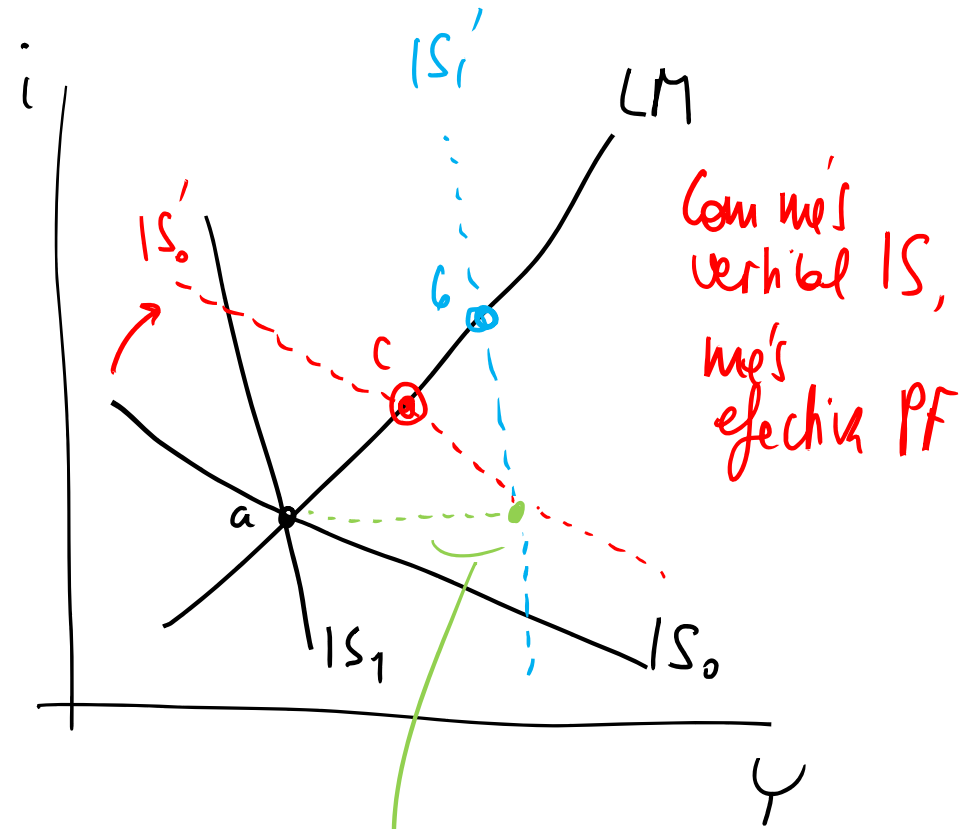 i
IS₁'
LM
IS₀'
Com més
vertical IS,
més
efectiva PF
b
c
a
IS₁
IS₀
Y